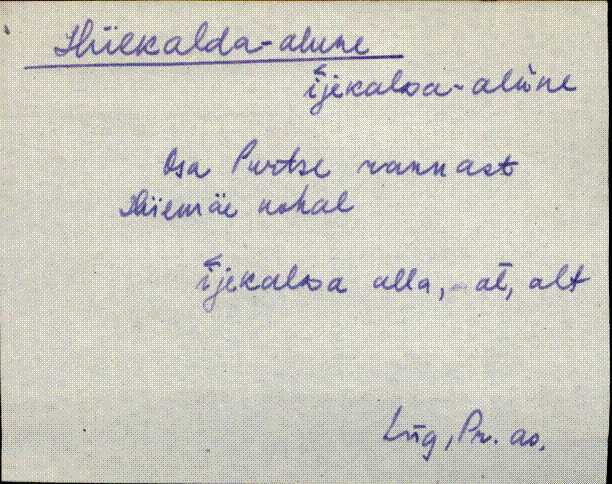 Hiiekalda-alune
ījekalda-alune
Osa Purtse rannast
Hiiemäe kohal
ījekalda alla, -al, alt
Lüg, Pr. as.